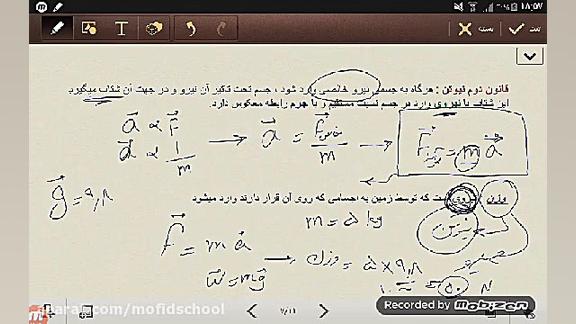 ۱۸:۵۷
ثبت
بسته
قانون دوم نیوتن : هرگاه به جسمی نیرو خالصی وارد شود ، جسم تحت تاثیر آن نیرو و در جهت آن شتاب میگیرد
این شتاب با نیروی وارد بر جسم نسبت مستقیم و با جرم رابطه معکوس دارد.
a ∝ F
a ∝ 1/m
a = F خالص / m
F خالص = m a
g = ۹,۸
وزن
ست که توسط زمین به اجسامی که روی آن قرار دارند وارد میشود
زمین
m = ۵ kg
F = m a
w = mg
وزن = ۵ × ۹,۸
= ۵۰ N
۷/۱۱
aparat.com/mofidschool
Recorded by Mobizen